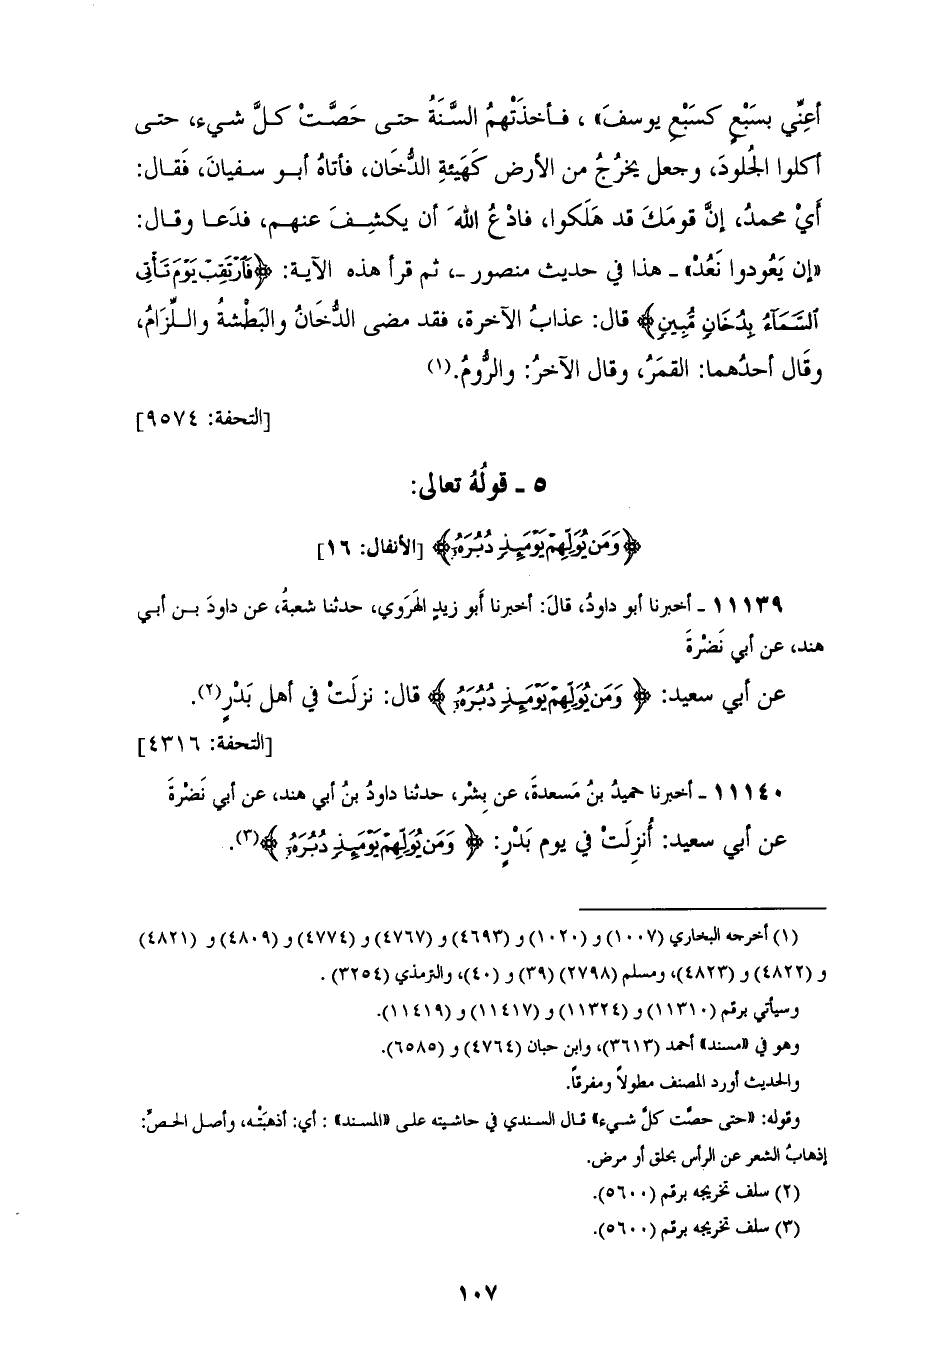 أعِنِّي بسَبْعٍ كسَبْعِ يوسفَ» ، فـأخذَتْهمُ السَّنَةُ حتـى حَصَّـتْ كـلَّ شيء، حتـى
أكلوا الجُلودَ، وجعل يخرُجُ من الأرض كَهَيئةِ الدُّخَان، فأتاهُ أبـو سـفيانَ، فَقـال:
أَيْ محمدُ، إنَّ قومَكَ قد هَلَكوا، فادْعُ اللهَ أن يكشِـفَ عنهـم، فدَعـا وقـال:
«إن يَعُودوا نَعُدْ» ـ هذا في حديث منصور ـ، ثم قرأ هذه الآية: ﴿فَٱرْتَقِبْ يَوْمَ تَأْتِى
ٱلسَّمَآءُ بِدُخَانٍ مُّبِينٍ﴾ قال: عذابُ الآخرة، فقد مضى الدُّخَانُ والبَطْشةُ واللِّزامُ،
وقَال أحدُهما: القمَرُ، وقال الآخرُ: والرُّومُ.(١)
[التحفة: ٩٥٧٤]
٥ ـ قولُهُ تعالى:
﴿وَمَن يُوَلِّهِمْ يَوْمَئِذٍ دُبُرَهُۥ﴾ [الأنفال: ١٦]
١١١٣٩ ـ أخبرنا أبو داودُ، قالَ: أخبرنا أَبو زيدٍ الهَرَوي، حدثنا شعبةُ، عن داودَ بـن أبي
هند، عن أبي نَضْرةَ
عن أبي سعيد: ﴿وَمَن يُوَلِّهِمْ يَوْمَئِذٍ دُبُرَهُۥ﴾ قال: نزلَتْ في أهل بَدْرٍ(٢).
[التحفة: ٤٣١٦]
١١١٤٠ ـ أخبرنا حميدُ بنُ مَسعدةَ، عن بِشْر، حدثنا داودُ بنُ أبي هند، عن أبي نَضْرةَ
عن أبي سعيد: أُنزِلَتْ في يوم بَدْرٍ: ﴿وَمَن يُوَلِّهِمْ يَوْمَئِذٍ دُبُرَهُۥ﴾(٣).
(١) أخرجه البخاري (١٠٠٧) و (١٠٢٠) و (٤٦٩٣) و (٤٧٦٧) و (٤٧٧٤) و (٤٨٠٩) و (٤٨٢١)
و (٤٨٢٢) و (٤٨٢٣)، ومسلم (٢٧٩٨) (٣٩) و (٤٠)، والترمذي (٣٢٥٤) .
وسيأتي برقم (١١٣١٠) و (١١٣٢٤) و (١١٤١٧) و (١١٤١٩).
وهو في «مسند» أحمد (٣٦١٣)، وابن حبان (٤٧٦٤) و (٦٥٨٥).
والحديث أورد المصنف مطولاً ومفرقاً.
وقوله: «حتى حصَّت كلَّ شيء» قال السندي في حاشيته على «المسند» : أي: أذهبَتْه، وأصل الحصِّ:
إذهابُ الشعر عن الرأس بحلق أو مرض.
(٢) سلف تخريجه برقم (٥٦٠٠).
(٣) سلف تخريجه برقم (٥٦٠٠).
١٠٧